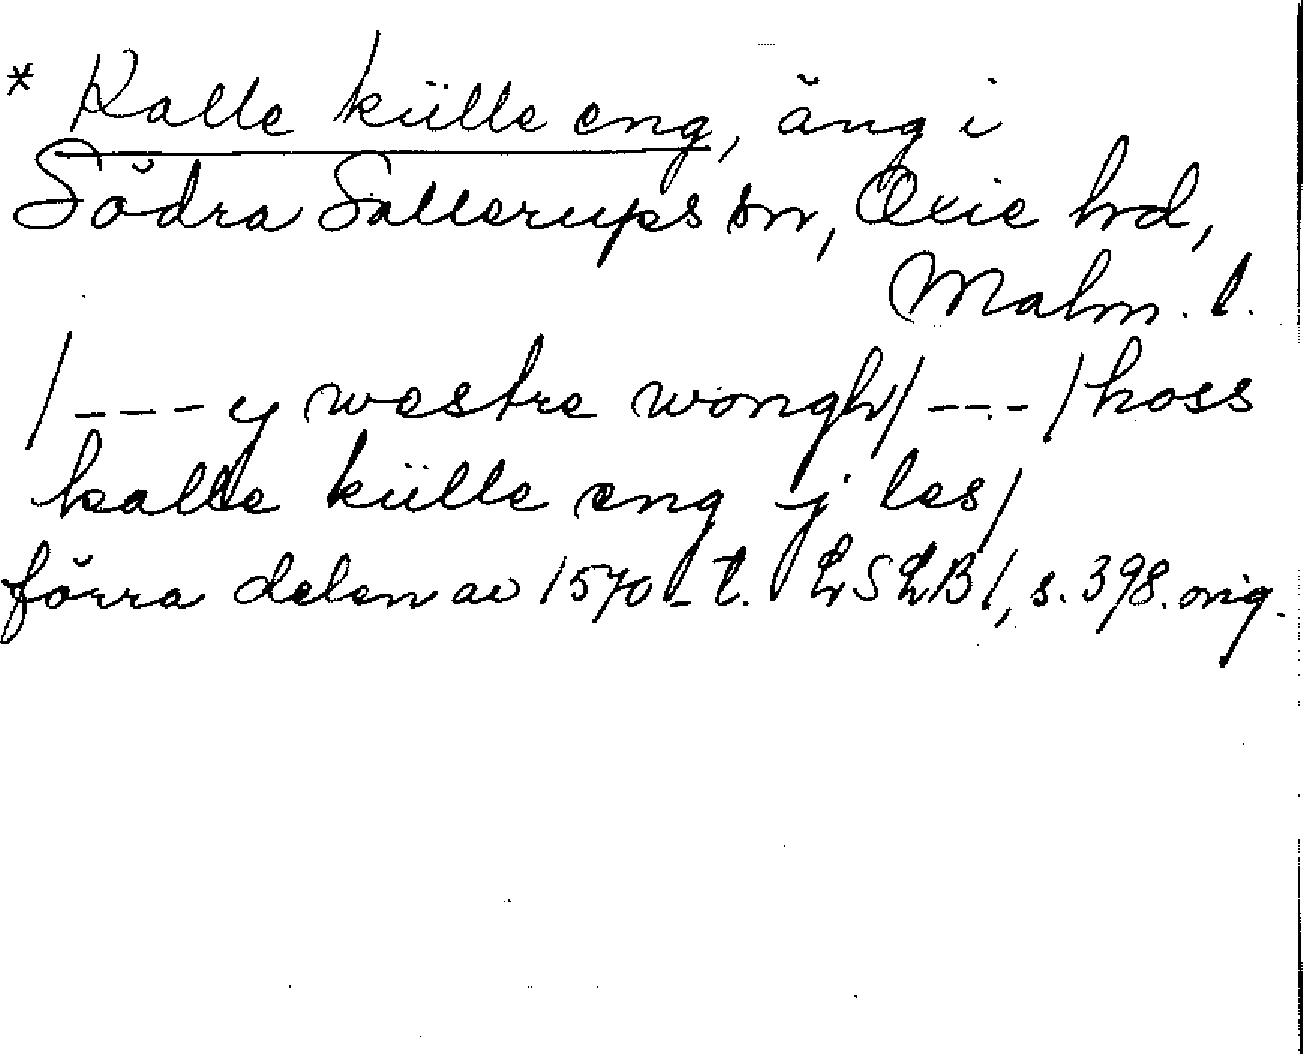 * Kalle külle eng, äng i
Södra Sallerups sn, Oxie hd,
Malm. l.
/ --- y westre wongh/ --- /hoss
kalle külle eng j les/
förra delen av 1570-t. LSLB 1, s. 398. orig.